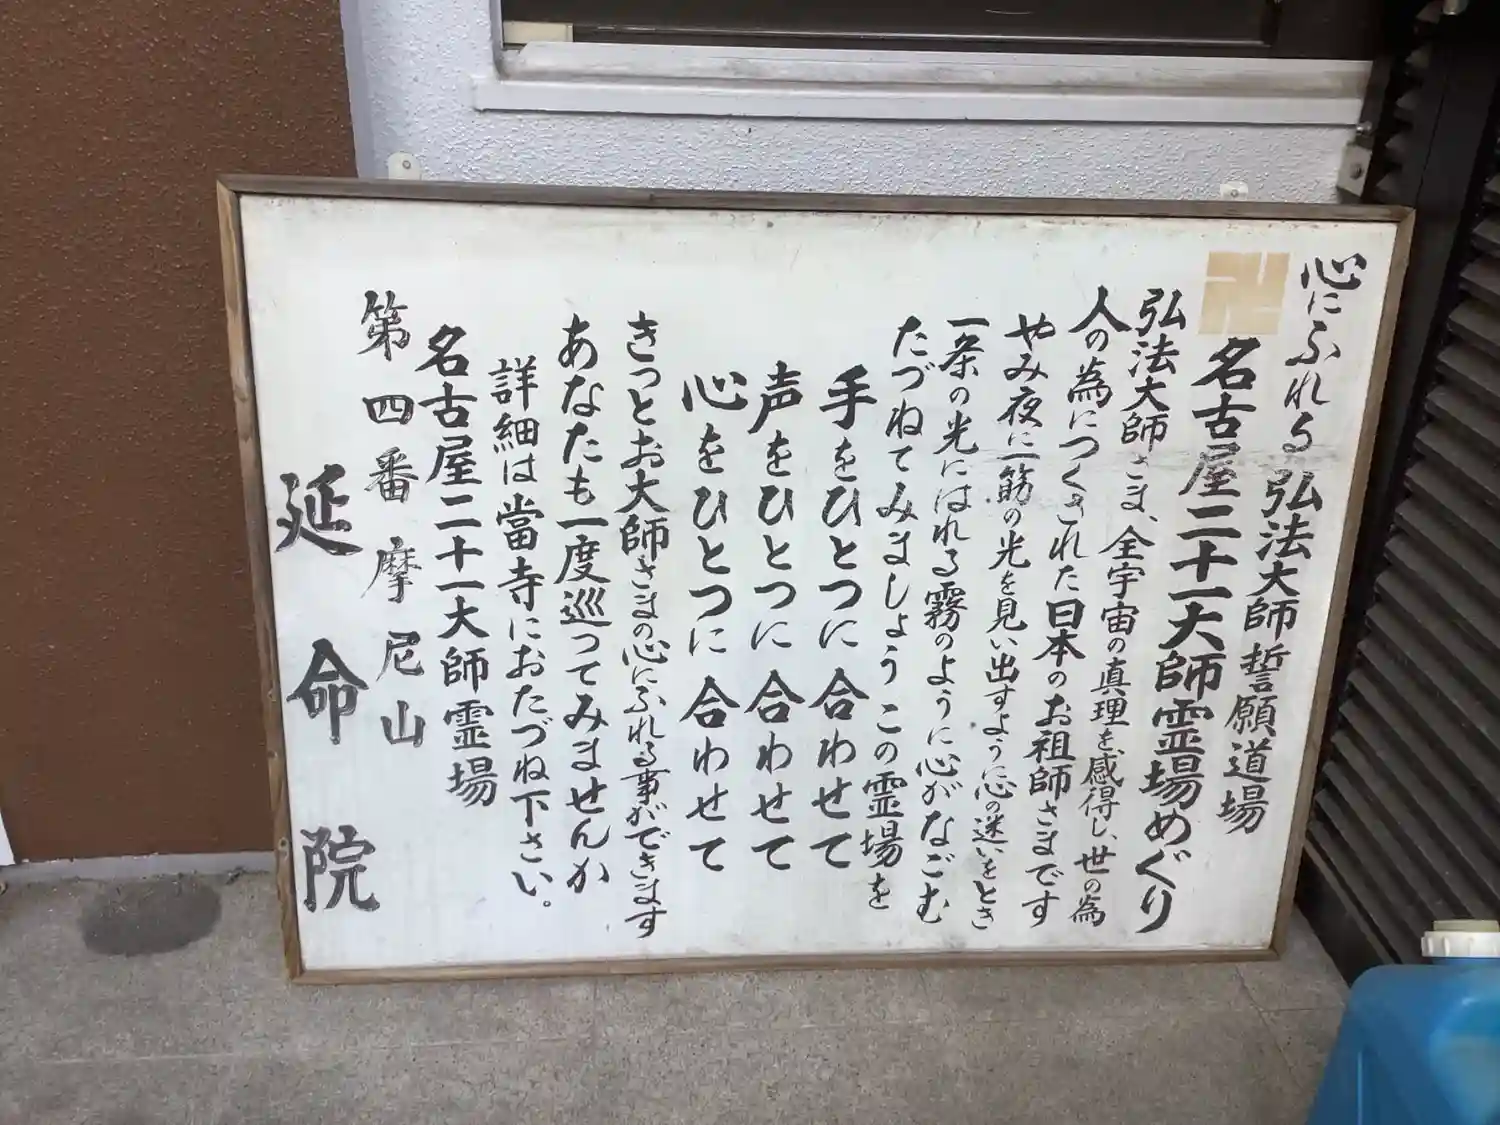 心にふれる 弘法大師 誓願道場
卍 名古屋二十一大師霊場めぐり
弘法大師さま、全宇宙の真理を感得し、世の為
人の為につくされた日本のお祖師さまです
やみ夜に一筋の光を見い出すように心の迷いをとき
一条の光にはれる霧のように心がなごむ
たづねてみましょう この霊場を
手をひとつに合わせて
声をひとつに合わせて
心をひとつに合わせて
きっとお大師さまの心にふれる事ができます
あなたも一度巡ってみませんか
詳細は當寺におたづね下さい。
名古屋二十一大師霊場
第四番 摩尼山
延命院